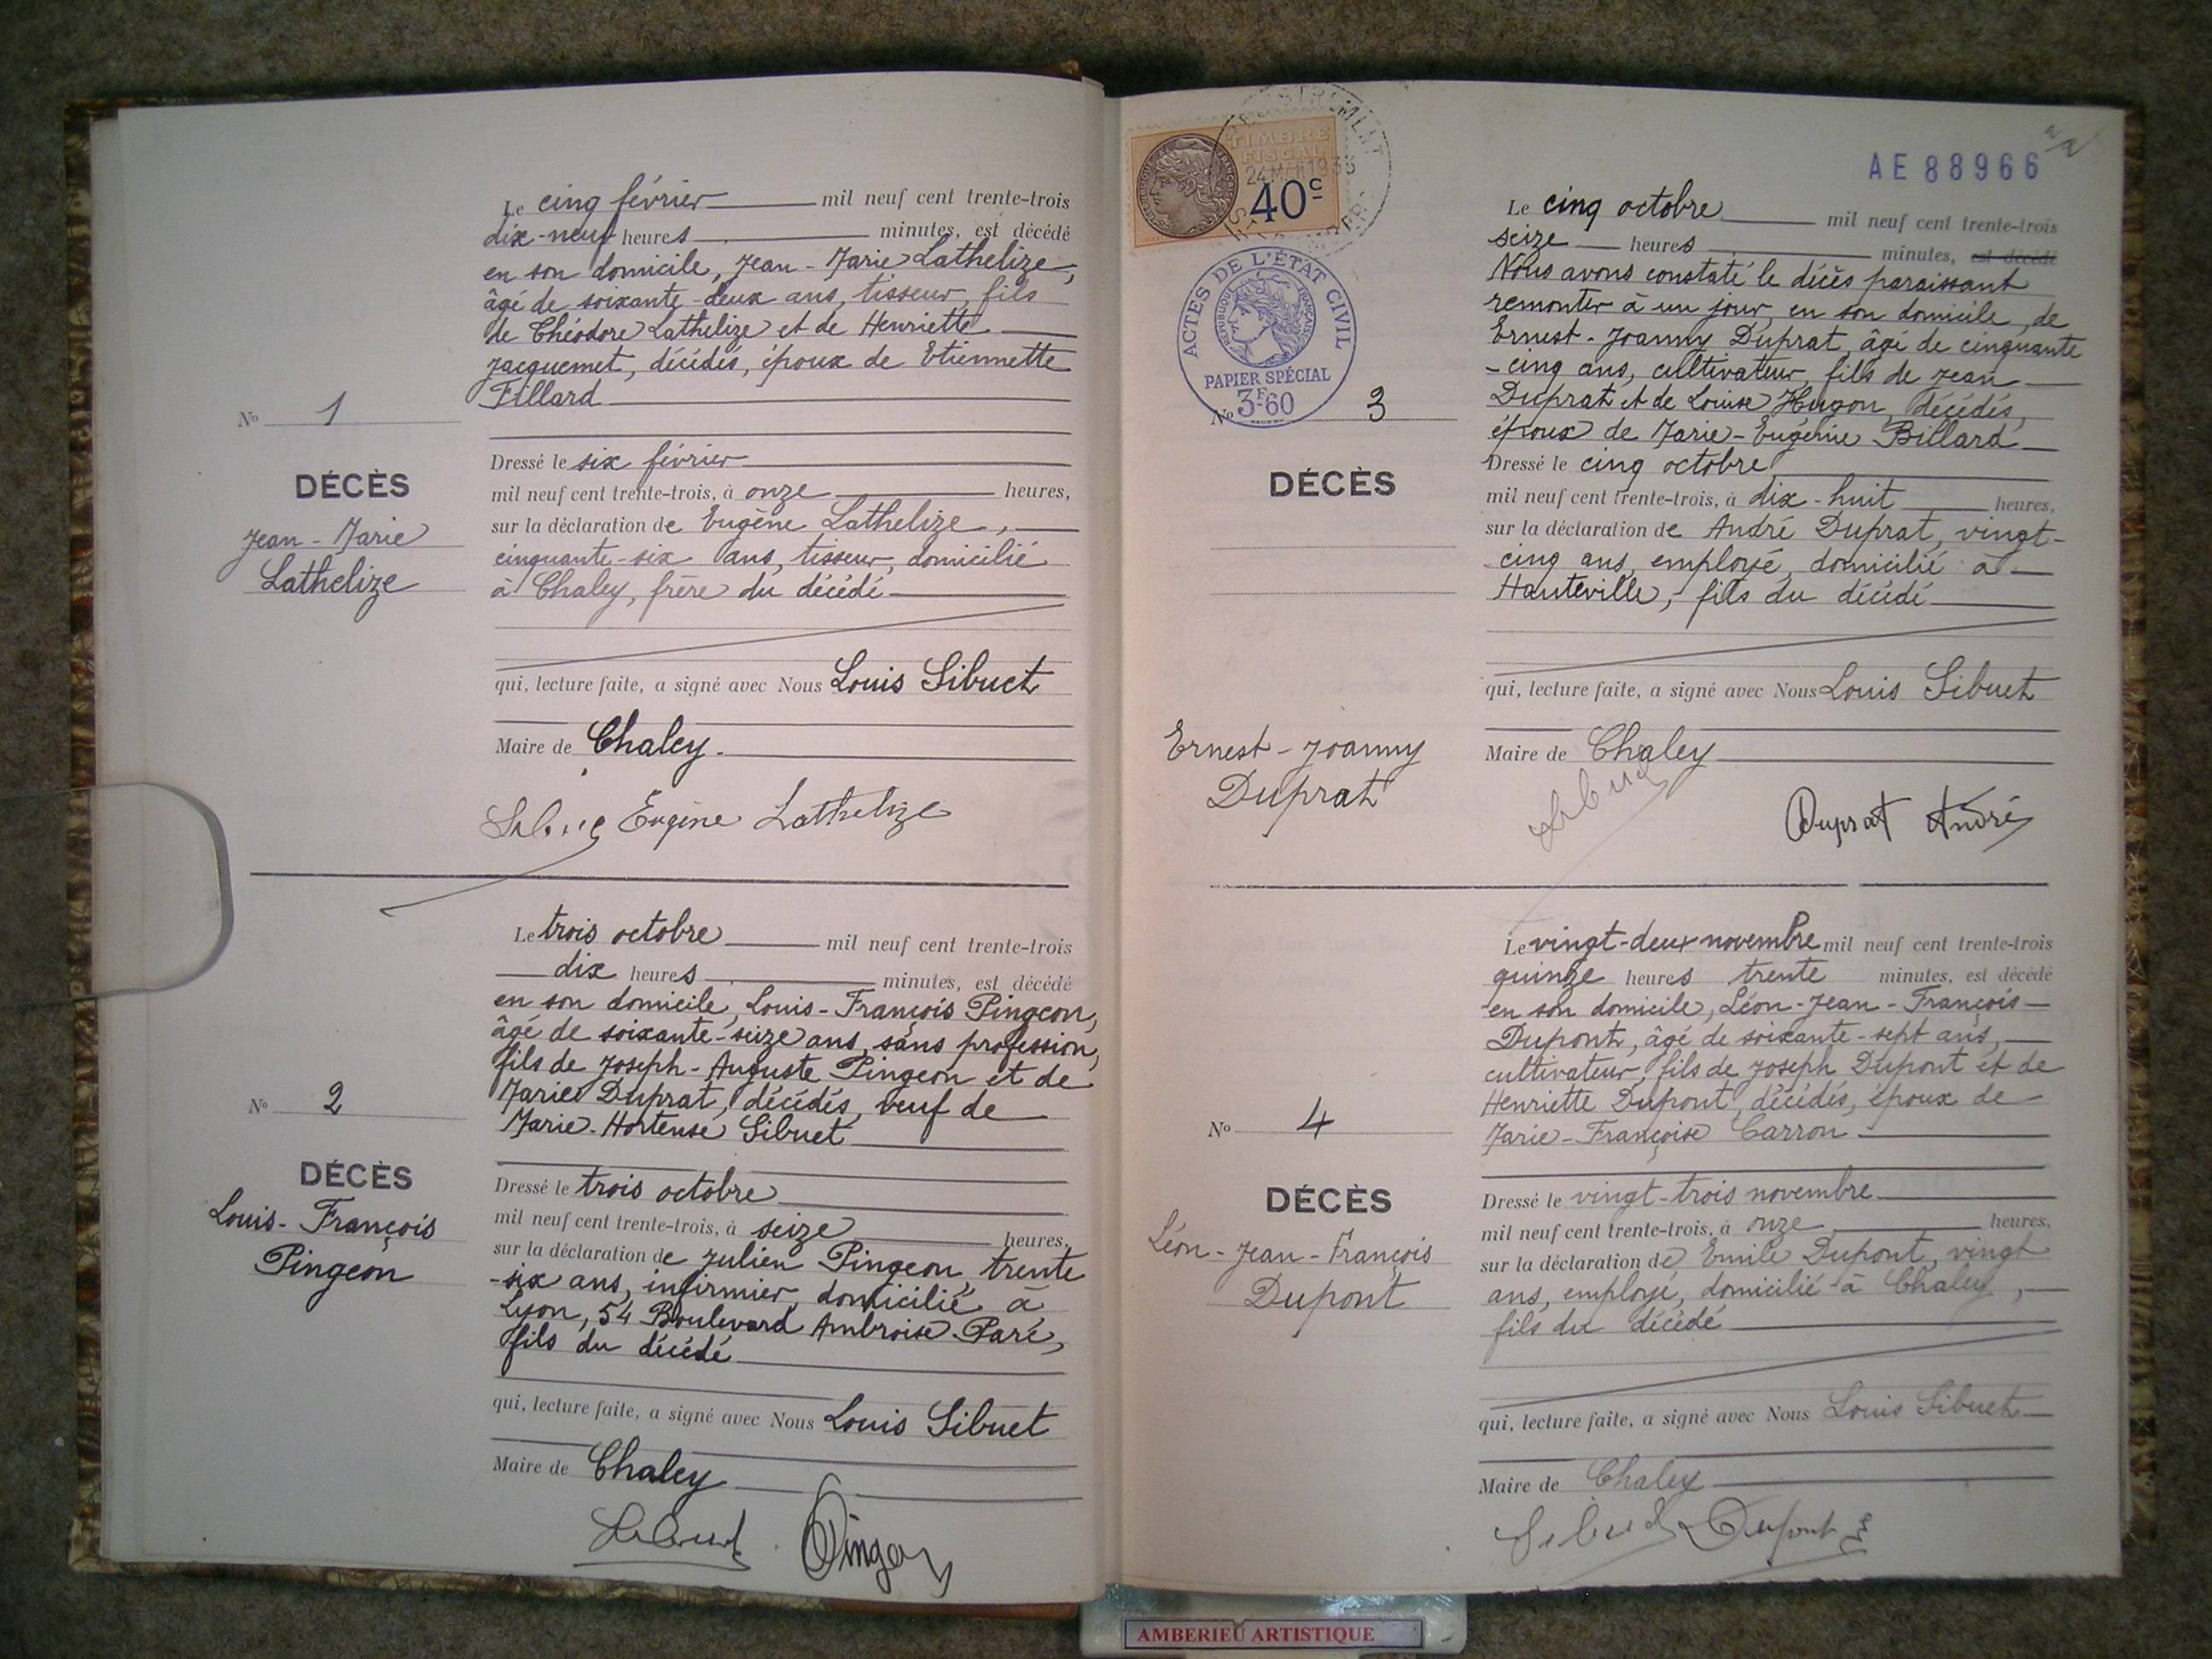 Le cinq février mil neuf cent trente-trois
dix-neuf heures minutes, est décédé
en son domicile, Jean-Marie Lathelize,
âgé de soixante-deux ans, tisseur, fils
de Théodore Lathelize et de Henriette
Jacquemet, décédés, époux de Etiennette
Fillard
No 1
DÉCÈS
Jean-Marie
Lathelize
Dressé le six février
mil neuf cent trente-trois, à onze heures,
sur la déclaration de Eugène Lathelize,
cinquante-six ans, tisseur, domicilié
à Chaley, frère du décédé
qui, lecture faite, a signé avec Nous Louis Sibuet
Maire de Chaley.
Sibuet Eugène Lathelize
Le trois octobre mil neuf cent trente-trois
dix heures minutes, est décédé
en son domicile, Louis-François Pingeon,
âgé de soixante-seize ans, sans profession,
fils de Joseph-Auguste Pingeon et de
Marie Duprat, décédés, veuf de
Marie-Hortense Sibuet
No 2
DÉCÈS
Louis-François
Pingeon
Dressé le trois octobre
mil neuf cent trente-trois, à seize heures,
sur la déclaration de Julien Pingeon, trente
-six ans, infirmier, domicilié à
Lyon, 54 Boulevard Ambroise Paré,
fils du décédé
qui, lecture faite, a signé avec Nous Louis Sibuet
Maire de Chaley
Sibuet Pingeon
TIMBRE
FISCAL
24 MAR 1933
40c
ACTES DE L'ÉTAT CIVIL
RÉPUBLIQUE FRANÇAISE
PAPIER SPÉCIAL
3F60
AE 88966
Le cinq octobre mil neuf cent trente-trois
seize heures minutes, est décédé
Nous avons constaté le décès paraissant
remonter à un jour, en son domicile, de
Ernest-Joanny Duprat, âgé de cinquante
-cinq ans, cultivateur, fils de Jean
Duprat et de Louise Hugon, décédés,
époux de Marie-Eugénie Billard
No 3
DÉCÈS
Ernest-Joanny
Duprat
Dressé le cinq octobre
mil neuf cent trente-trois, à dix-huit heures,
sur la déclaration de André Duprat, vingt-
cinq ans, employé, domicilié à
Hauteville, fils du décédé
qui, lecture faite, a signé avec Nous Louis Sibuet
Maire de Chaley
Sibuet Duprat André
Le vingt-deux novembre mil neuf cent trente-trois
quinze heures trente minutes, est décédé
en son domicile, Léon-Jean-François
Dupont, âgé de soixante-sept ans,
cultivateur, fils de Joseph Dupont et de
Henriette Dupont, décédés, époux de
Marie-Françoise Carron
No 4
DÉCÈS
Léon-Jean-François
Dupont
Dressé le vingt-trois novembre
mil neuf cent trente-trois, à onze heures,
sur la déclaration de Emile Dupont, vingt
ans, employé, domicilié à Chaley,
fils du décédé
qui, lecture faite, a signé avec Nous Louis Sibuet
Maire de Chaley
Sibuet Dupont
AMBERIEU ARTISTIQUE